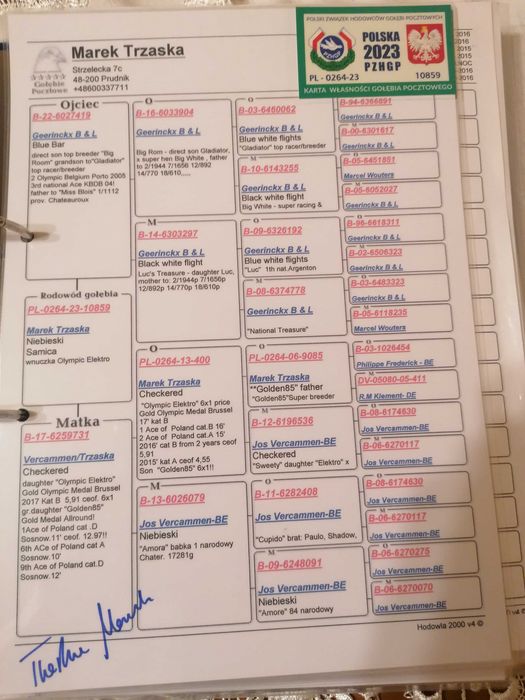 Marek Trzaska
Strzelecka 7c
48-200 Prudnik
+48600337711
Gołębie
Pocztowe
POLSKI ZWIĄZEK HODOWCÓW GOŁĘBI POCZTOWYCH
POLSKA
2023
PZHGP
PL - 0264-23
10859
KARTA WŁASNOŚCI GOŁĘBIA POCZTOWEGO
Ojciec
B-22-6027419
Geerinckx B & L
Blue Bar
direct son top breeder "Big
Room" grandson to"Gladiator"
top racer/breeder
2 Olympic Belgium Porto 2005
3rd national Ace KBDB 04!
father to "Miss Blois" 1/1112
prov. Chateauroux
Rodowód gołębia
PL-0264-23-10859
Marek Trzaska
Niebieski
Samica
wnuczka Olympic Elektro
Matka
B-17-6259731
Vercammen/Trzaska
Checkered
daughter "Olympic Elektro"
Gold Olympic Medal Brussel
2017 Kat B 5,91 ceof. 6x1
gr.daughter "Golden85"
Gold Medal Allround!
1Ace of Poland cat .D
Sosnow.11' ceof. 12.97!!
6th ACe of Poland cat A
Sosnow.10'
9th Ace of Poland cat.D
Sosnow.12'
O
B-16-6033904
Geerinckx B & L
Big Rom - direct son Gladiator,
x super hen Big White , father
to 2/1944 7/1656 12/892
14/770 18/610.....
M
B-14-6303297
Geerinckx B & L
Black white flight
Luc's Treasure - daughter Luc,
mother to: 2/1944p 7/1656p
12/892p 14/770p 18/610p
O
PL-0264-13-400
Marek Trzaska
Checkered
"Olympic Elektro" 6x1 price
Gold Olympic Medal Brussel
17' kat B
1 Ace of Poland cat.B 16'
2 Ace of Poland cat.A 15'
2016' cat B from 2 years ceof
5,91
2015' kat A ceof 4,55
Son "Golden85" 6x1!!
M
B-13-6026079
Jos Vercammen-BE
Niebieski
"Amora" babka 1 narodowy
Chater. 17281g
O
B-03-6460062
Geerinckx B & L
Blue white flights
"Gladiator" top racer/breeder
M
B-10-6143255
Geerinckx B & L
Black white flight
Big White - super racing &
O
B-09-6326192
Geerinckx B & L
Blue white flights
"Luc" 1th nat.Argenton
M
B-08-6374778
Geerinckx B & L
"National Treasure"
O
PL-0264-06-9085
Marek Trzaska
""Golden85" father
"Golden85"Super breeder
M
B-12-6196536
Jos Vercammen-BE
Checkered
"Sweety" daughter "Elektro" x
O
B-11-6282408
Jos Vercammen-BE
"Cupido" brat: Paulo, Shadow,
M
B-09-6248091
Jos Vercammen-BE
Niebieski
"Amore" 84 narodowy
B-94-6366891
Geerinckx B & L
M
B-00-6301617
Geerinckx B & L
O
B-05-6451851
Marcel Wouters
M
B-05-6052027
Geerinckx B & L
O
B-96-6618311
Geerinckx B & L
M
B-02-6506323
Geerinckx B & L
O
B-03-6483323
Geerinckx B & L
M
B-05-6118235
Marcel Wouters
O
B-03-1026454
Philippe Frederick - BE
M
DV-05080-05-411
R.M Klement- DE
O
B-08-6174630
Jos Vercammen-BE
M
B-06-6270117
Jos Vercammen-BE
O
B-08-6174630
Jos Vercammen-BE
M
B-06-6270117
Jos Vercammen-BE
O
B-06-6270275
Jos Vercammen-BE
M
B-06-6270070
Jos Vercammen-BE
Hodowla 2000 v4 ©
2016
2016
2015
2015
NOC
2016
2016